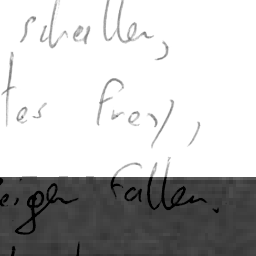 schallen,
tes frey,
eigen fallen.